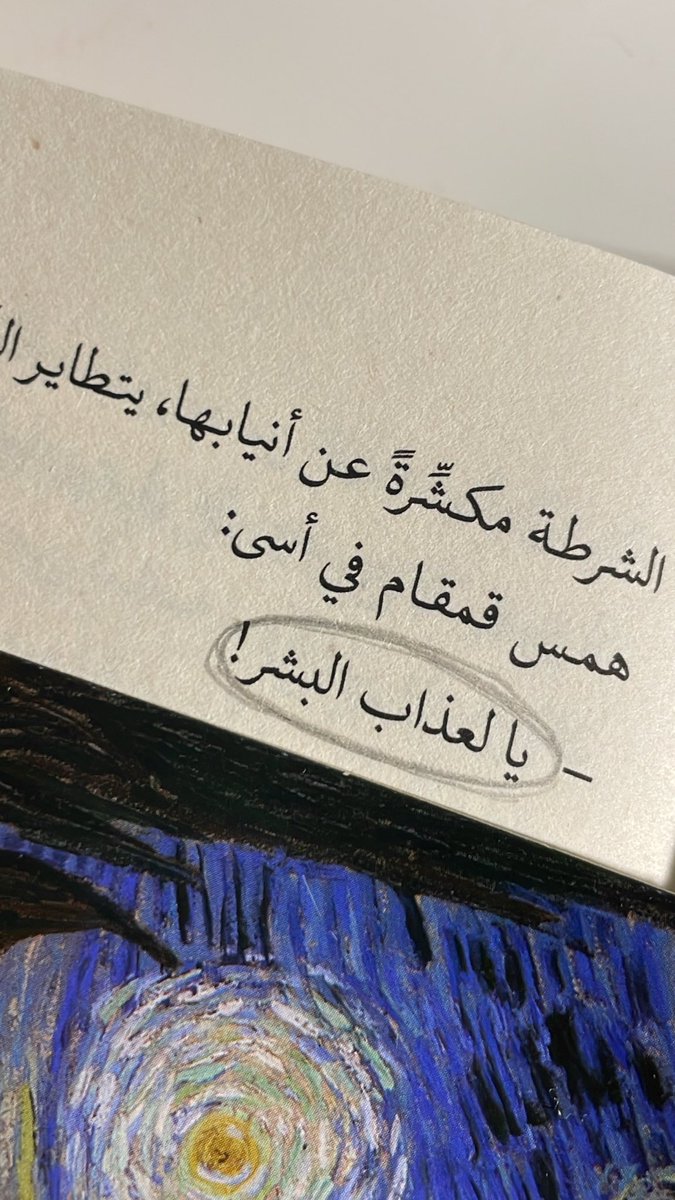 الشرطة مكشِّرةً عن أنيابها، يتطاير
همس قمقام في أسى:
– يا لعذاب البشر!